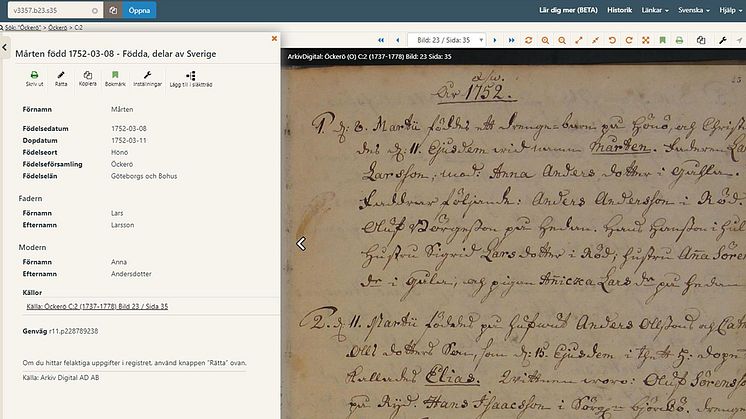 v3357.b23.s35
Öppna
Lär dig mer (BETA)
Historik
Länkar
Svenska
Hjälp
Sök: "Öckerö" > Öckerö > C:2
Mårten född 1752-03-08 - Födda, delar av Sverige
Skriv ut
Rätta
Kopiera
Bokmärk
Inställningar
Lägg till i släktträd
Förnamn Mårten
Födelsedatum 1752-03-08
Dopdatum 1752-03-11
Födelseort Hönö
Födelseförsamling Öckerö
Födelselän Göteborgs och Bohus
Fadern
Förnamn Lars
Efternamn Larsson
Modern
Förnamn Anna
Efternamn Andersdotter
Källor
Källa: Öckerö C:2 (1737-1778) Bild 23 / Sida 35
Genväg r11.p228789238
Om du hittar felaktiga uppgifter i registret, använd knappen "Rätta" ovan.
Källa: Arkiv Digital AD AB
Bild: 23 / Sida: 35
ArkivDigital: Öckerö (O) C:2 (1737-1778) Bild: 23 Sida: 35
År 1752.
1. d: 8. Martii föddes ett drenge-barn på Hönö, och Christ
des d: 11. Ejusdem wid namn Mårten. Faderen La
Larsson, mod: Anna Anders dotter i Guhla.
Faddrar följande: Anders Andersson i Röd.
Oluf Börgesson på Hedan. Hans Hansson i hul
Hustru Sigrid Lars dotter i Röd, hustru Anna Sören
de i gula, och pigan Annicka Lars dr på Hedan
2. d: 11. Martii föddes på hufwud Anders Olssons och Cat
Olufs dotters Son, som d: 15. Ejusdem i
kallades Elias. Wittnen woro: Oluf Sörensso
på Ryd. Hans Isaacsson i